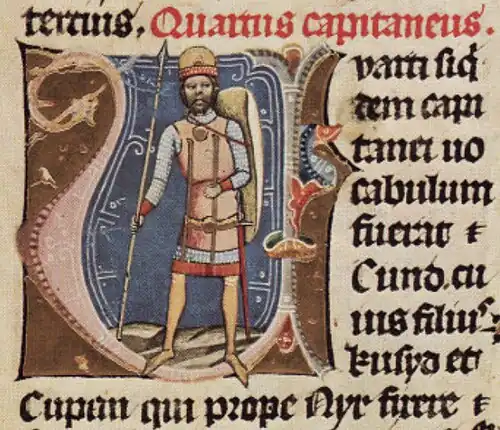 tertius. Quartus capitaneus.
Quarti siq
dem capi
tanei uo
cabulum
fuerat ⁊
Cund. cu
ius filius
kusyd et
Cupan qui prope Nyr fuere ⁊